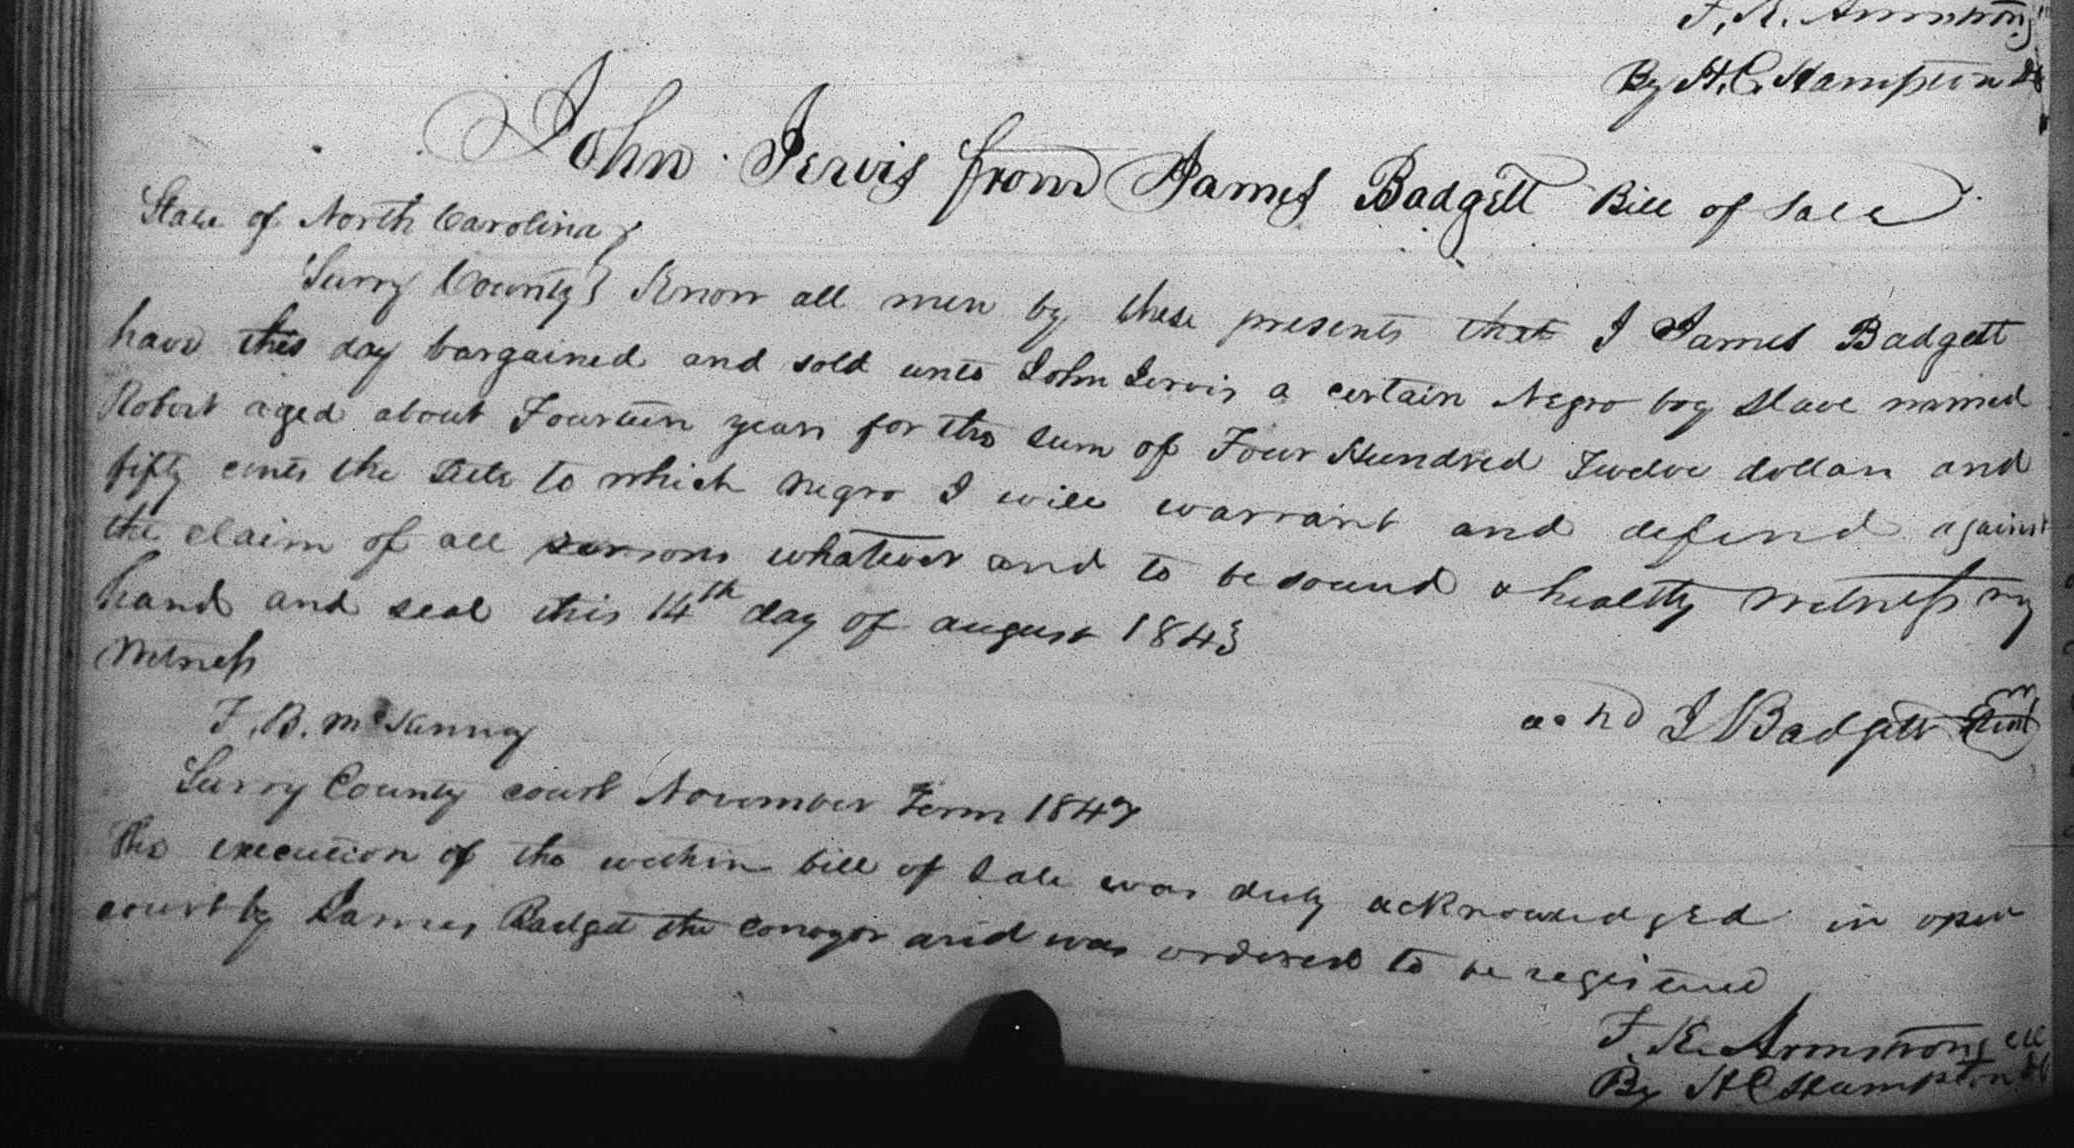 F. K. Armstrong
By H. C. Hampton
John Jervis from James Badgett Bill of Sale
State of North Carolina
Surry County Know all men by these presents that I James Badgett
have this day bargained and sold unto John Jervis a certain Negro boy Slave named
Robert aged about Fourteen years for the sum of Four Hundred Twelve dollars and
fifty cents the title to which negro I will warrant and defend against
the claim of all persons whatever and to be sound & healthy Witness my
hand and seal this 14th day of august 1843
Witness
J Badgett Seal
F. B. McKinney
Surry County court November Term 1847
The execution of the within bill of Sale was duly acknowledged in open
court by James Badgett the conveyor and was ordered to be registered
F. K. Armstrong clk
By H C Hampton